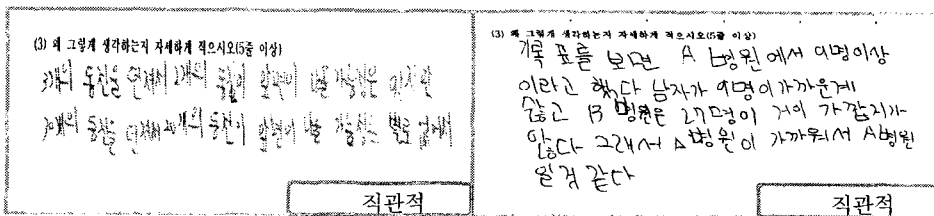 (3) 왜 그렇게 생각하는지 자세하게 적으시오(5줄 이상)
3개의 동전을 던져서 2개의 동전이 앞면이 나올 가능성은 많지만
30개의 동전을 던져서 20개의 동전이 앞면이 나올 가능성은 별로 없어서
직관적
(3) 왜 그렇게 생각하는지 자세하게 적으시오(5줄 이상)
기록 표를 보면 A 병원에서 이상
이라고 했다 남자가 가까운게
많고 B 병원은 27명이 거이 가깝지가
않다 그래서 A병원이 가까워서 A병원
일것 같다
직관적